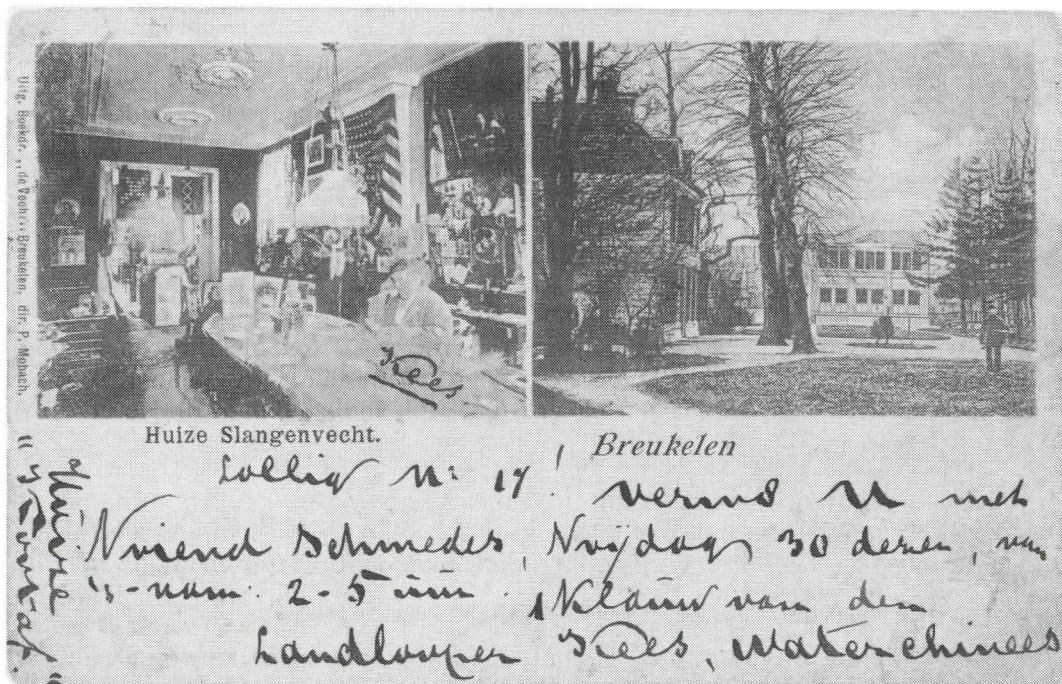 Uitg. Boekdr. „de Vecht" Breukelen. dir. P. Mobach.
Kees
Huize Slangenvecht.
Breukelen
Lollig N: 17!
U met
Vriend Schmedes, Vrijdag 30 dezer, van
's-nam. 2-5 uur. 1 Klauw van den
Landlooper Kees, Waterchinees
Huize